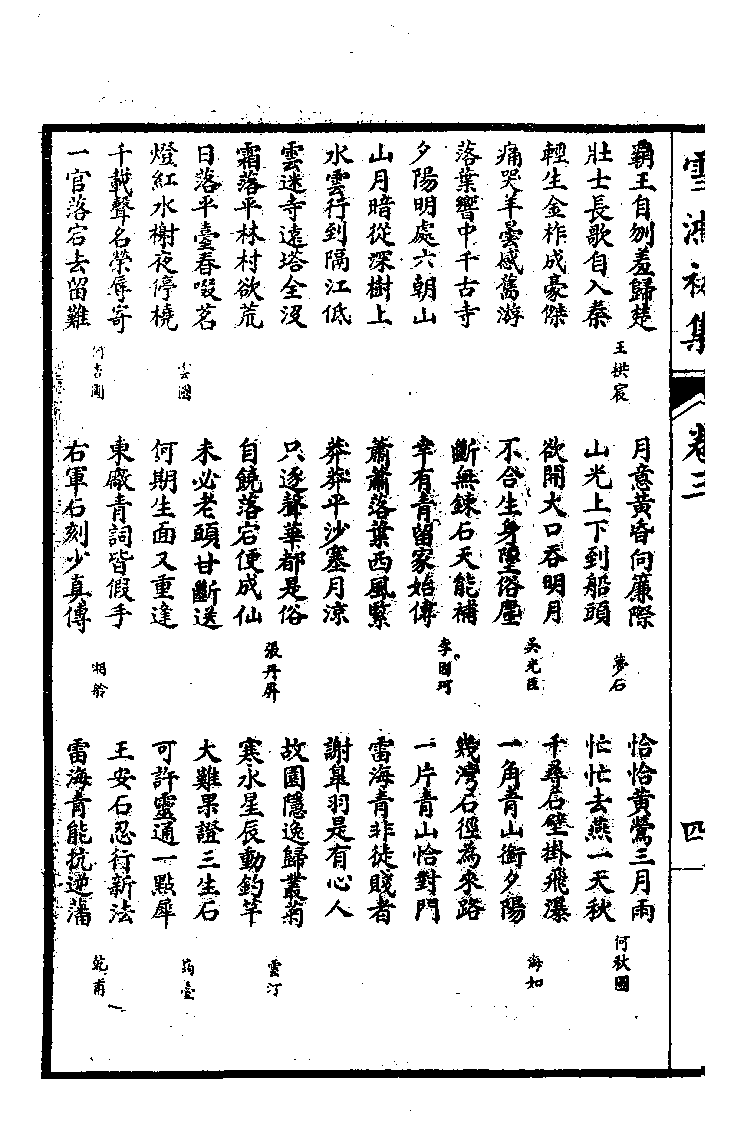 雪鴻初集
卷三
四
霸王自刎羞歸楚
壯士長歌自入秦
王拱宸
輕生金柞成豪傑
痛哭羊曇感舊游
落葉響中千古寺
夕陽明處六朝山
山月暗從深樹上
水雲行到隔江低
雲迷寺遠塔全沒
霜落平林村欲荒
日落平臺春啜茗
燈紅水榭夜停橈
千載聲名榮辱寄
一官落宕去留難
月意黃昏向簾際
山光上下到船頭
夢石
欲開大口吞明月
不合生身墮俗塵
吳光臣
斷無鍊石天能補
幸有青留家始傳
李國珂
蕭蕭落葉西風緊
莽莽平沙塞月涼
只逐聲華都是俗
自饒落宕便成仙
張丹屏
未必老頭甘斷送
何期生面又重逢
東廠青詞皆假手
右軍石刻少真傳
恰恰黃鶯三月雨
忙忙去燕一天秋
何秋園
千尋石壁掛飛瀑
一角青山銜夕陽
海如
幾灣石徑為來路
一片青山恰對門
雷海青非徒賤者
謝皋羽是有心人
故園隱逸歸叢菊
寒水星辰動釣竿
雲汀
大難果證三生石
可許靈通一點犀
筠臺
王安石忍行新法
雷海青能抗逆藩
乾甫